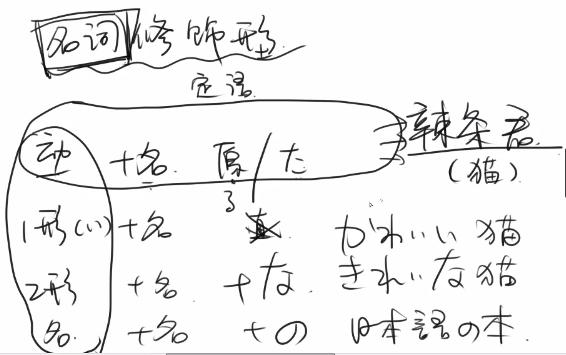 名词修饰形
定语
动 +名 原/た 辣条君
る (猫)
1形(い) +名 かわいい猫
2形 +名 +な きれいな猫
名 +名 +の 日本語の本